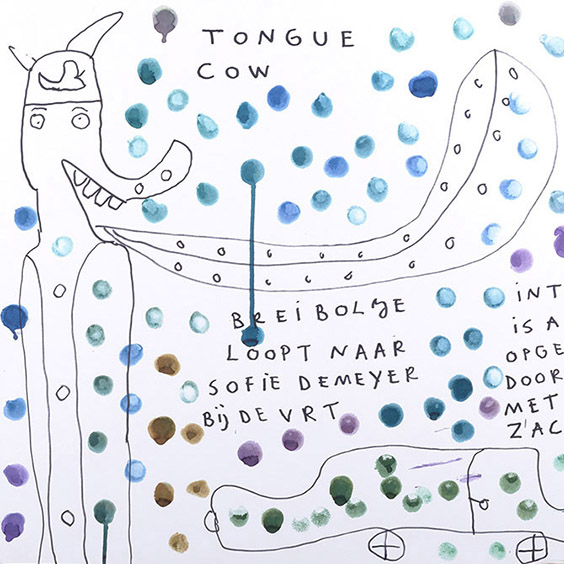 TONGUE
COW
BREIBOLJE
LOOPT NAAR
SOFIE DEMEYER
Bij DE VRT
iNT
iS A
OPGE
DOOR
MET
Z'AC